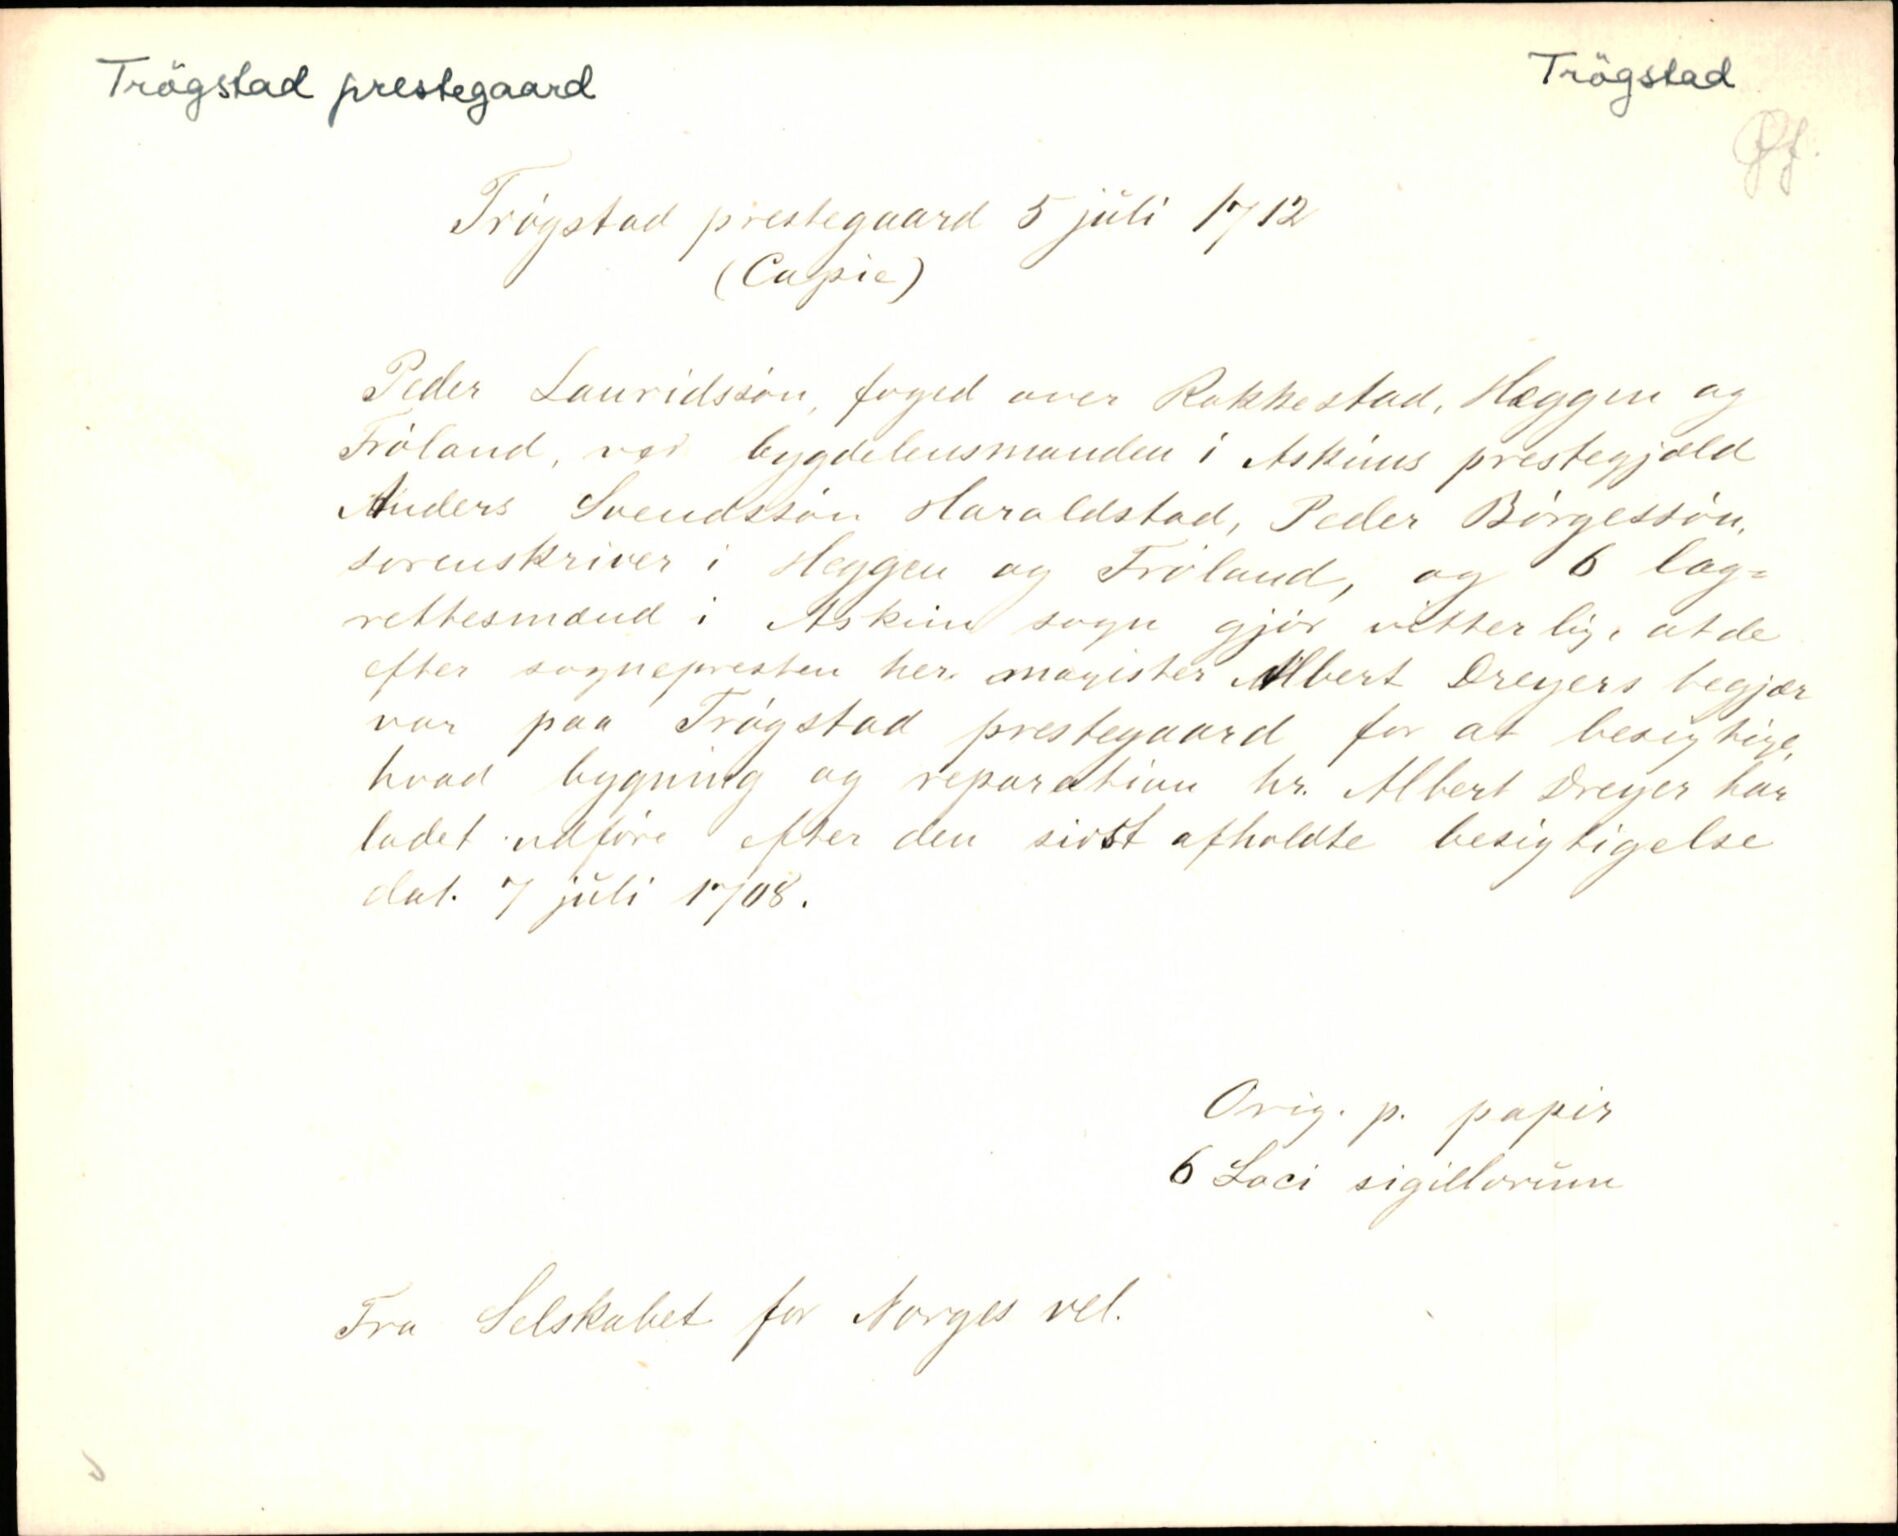 Trögstad prestegaard
Trögstad
Øf.
Trögstad prestegaard 5 juli 1712
(Copie)
Peder Lauridssön, foged over Rakkestad, Heggen og
Fröland, ved bygdelensmanden i Askims prestegjæld
Anders Svendssön Haraldstad, Peder Börgessön,
sorenskriver i Heggen og Fröland, og 6 lag-
rettesmænd i Askim sogn gjör vitterlig, at de
efter sognepresten her. magister Albert Dreyers begjær
var paa Trögstad prestegaard for at besigtige,
hvad bygning og reparation hr. Albert Dreyer har
ladet udföre efter den sidst afholdte besigtigelse
dat. 7 juli 1708.
Orig. p. papir
6 Loci sigillorum
Fra Selskabet for Norges vel.